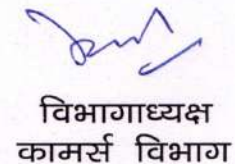 विभागाध्यक्ष
कामर्स विभाग